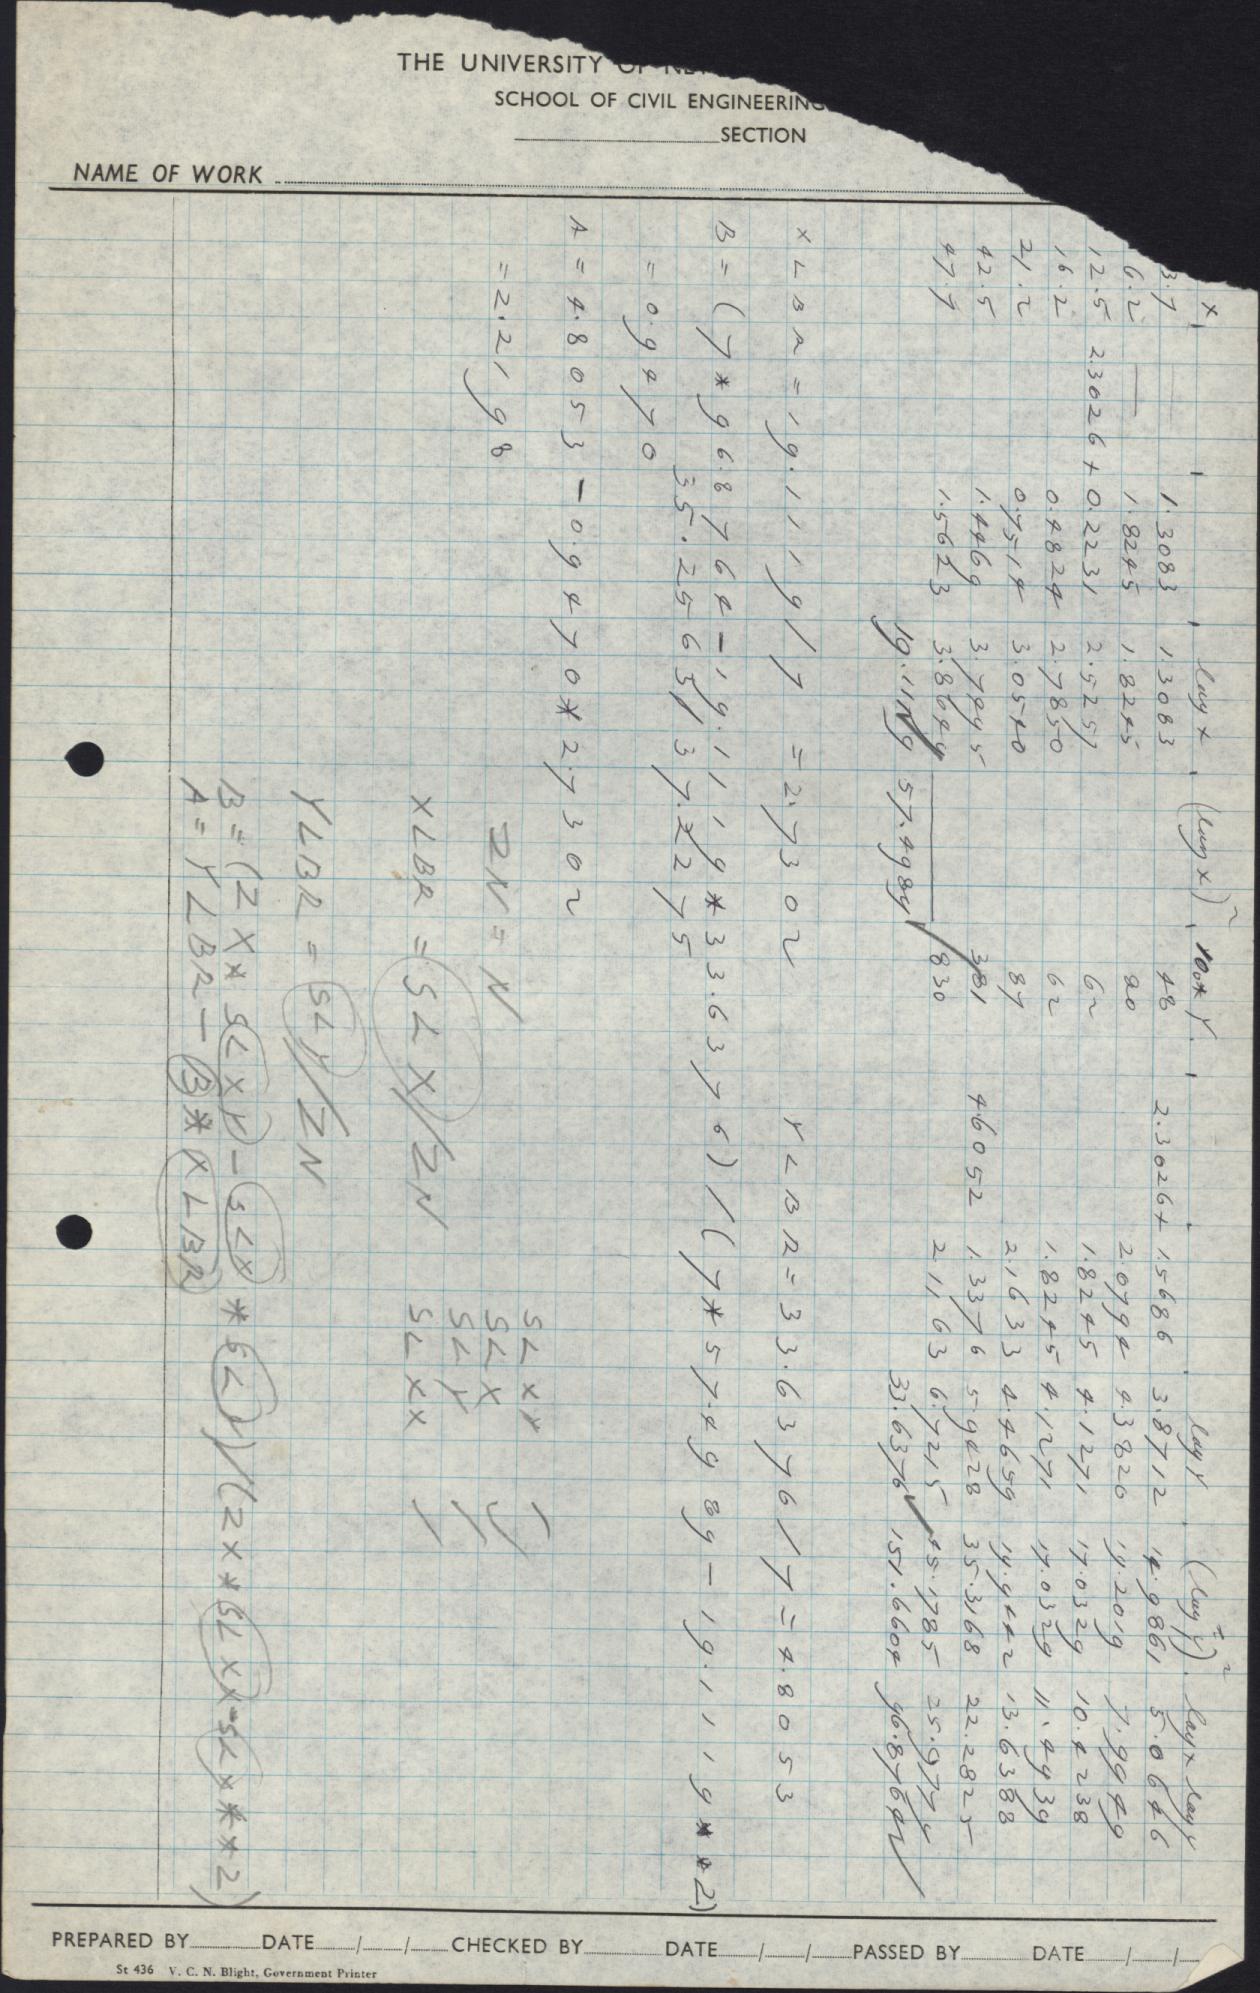 THE UNIVERSITY OF NE
SCHOOL OF CIVIL ENGINEERING
SECTION
NAME OF WORK
x log x (log x)² 10* Y log Y (log Y)² log x log Y
3.7 1.3083 1.3083 48 2.3026+ 1.5686 3.8712 14.9861 5.0646
6.2 — 1.8245 1.8245 80 2.0794 4.3820 19.2019 7.9949
12.5 2.3026+ 0.2231 2.5257 62 1.8245 4.1271 17.0329 10.4238
16.2 0.4824 2.7850 62 1.8245 4.1271 17.0329 11.4939
21.2 0.7514 3.0540 87 2.1633 4.4659 19.9442 13.6388
42.5 1.4469 3.7495 381 4.6052 1.3376 5.9428 35.3168 22.2825
47.7 1.5623 3.8649 830 2.1163 6.7215 45.1785 25.9779
19.1119 57.4989 33.6376 151.6604 96.8764
XLBR = 19.1119/7 = 2.7302 YLBR = 33.6376/7 = 4.8053
B = (7*96.8764-19.1119*33.6376)/(7*57.4989-19.1119**2)
35.2563/37.2275
= 0.9470
A = 4.8053 - 0.9470*2.7302
= 2.2198
ZN = N
XLBR = SLX/ZN
YLBR = SLY/ZN
B = (ZX*SLXY-SLX*SLY)/(ZX*SLXX-SLX**2)
A = YLBR-B*XLBR
SLXY
SLX
SLY
SLXX
PREPARED BY DATE / / CHECKED BY DATE / / PASSED BY DATE / /
St 436 V. C. N. Blight, Government Printer